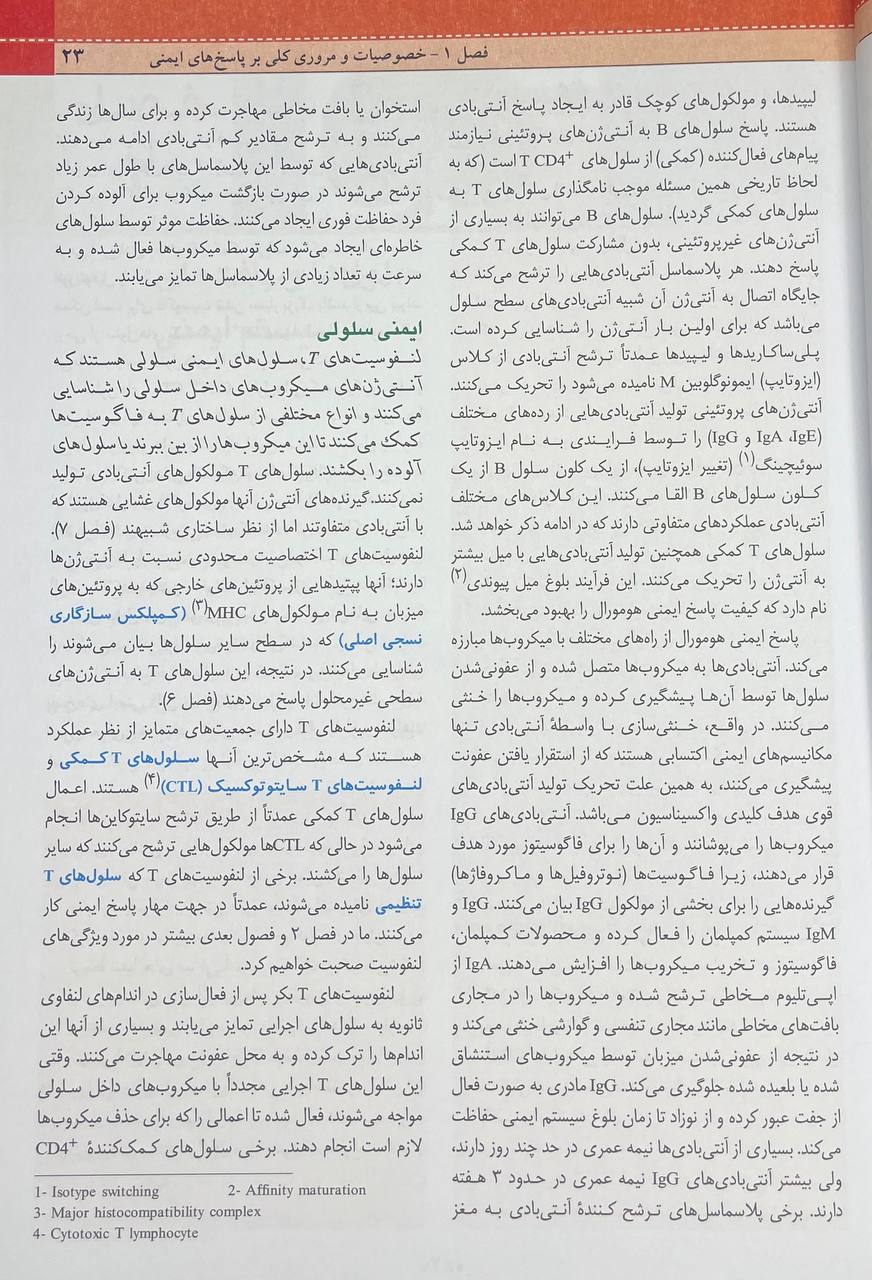 فصل ۱- خصوصیات و مروری کلی بر پاسخ‌های ایمنی ۲۳
لیپیدها، و مولکول‌های کوچک قادر به ایجاد پاسخ آنتی‌بادی
هستند. پاسخ سلول‌های B به آنتی‌ژن‌های پروتئینی نیازمند
پیام‌های فعال‌کننده (کمکی) از سلول‌های T CD4+ است (که به
لحاظ تاریخی همین مسئله موجب نامگذاری سلول‌های T به
سلول‌های کمکی گردید). سلول‌های B می‌توانند به بسیاری از
آنتی‌ژن‌های غیرپروتئینی، بدون مشارکت سلول‌های T کمکی
پاسخ دهند. هر پلاسماسل آنتی‌بادی‌هایی را ترشح می‌کند که
جایگاه اتصال به آنتی‌ژن آن شبیه آنتی‌بادی‌های سطح سلول
می‌باشد که برای اولین بار آنتی‌ژن را شناسایی کرده است.
پلی‌ساکاریدها و لیپیدها عمدتاً ترشح آنتی‌بادی از کلاس
(ایزوتایپ) ایمونوگلوبین M نامیده می‌شود را تحریک می‌کنند.
آنتی‌ژن‌های پروتئینی تولید آنتی‌بادی‌هایی از رده‌های مختلف
(IgA ،IgE و IgG) را توسط فرایندی به نام ایزوتایپ
سوئیچینگ(۱) (تغییر ایزوتایپ)، از یک کلون سلول B از یک
کلون سلول‌های B القا می‌کنند. این کلاس‌های مختلف
آنتی‌بادی عملکردهای متفاوتی دارند که در ادامه ذکر خواهد شد.
سلول‌های T کمکی همچنین تولید آنتی‌بادی‌هایی با میل بیشتر
به آنتی‌ژن را تحریک می‌کنند. این فرآیند بلوغ میل پیوندی(۲)
نام دارد که کیفیت پاسخ ایمنی هومورال را بهبود می‌بخشد.
پاسخ ایمنی هومورال از راه‌های مختلف با میکروب‌ها مبارزه
می‌کند. آنتی‌بادی‌ها به میکروب‌ها متصل شده و از عفونی‌شدن
سلول‌ها توسط آن‌ها پیشگیری کرده و میکروب‌ها را خنثی
می‌کنند. در واقع، خنثی‌سازی با واسطهٔ آنتی‌بادی تنها
مکانیسم‌های ایمنی اکتسابی هستند که از استقرار یافتن عفونت
پیشگیری می‌کنند، به همین علت تحریک تولید آنتی‌بادی‌های
قوی هدف کلیدی واکسیناسیون می‌باشد. آنتی‌بادی‌های IgG
میکروب‌ها را می‌پوشانند و آن‌ها را برای فاگوسیتوز مورد هدف
قرار می‌دهند، زیرا فاگوسیت‌ها (نوتروفیل‌ها و ماکروفاژها)
گیرنده‌هایی را برای بخشی از مولکول IgG بیان می‌کنند. IgG و
IgM سیستم کمپلمان را فعال کرده و محصولات کمپلمان،
فاگوسیتوز و تخریب میکروب‌ها را افزایش می‌دهند. IgA از
اپی‌تلیوم مخاطی ترشح شده و میکروب‌ها را در مجاری
بافت‌های مخاطی مانند مجاری تنفسی و گوارشی خنثی می‌کند و
در نتیجه از عفونی‌شدن میزبان توسط میکروب‌های استنشاق
شده یا بلعیده شده جلوگیری می‌کند. IgG مادری به صورت فعال
از جفت عبور کرده و از نوزاد تا زمان بلوغ سیستم ایمنی حفاظت
می‌کند. بسیاری از آنتی‌بادی‌ها نیمه عمری در حد چند روز دارند،
ولی بیشتر آنتی‌بادی‌های IgG نیمه عمری در حدود ۳ هفته
دارند. برخی پلاسماسل‌های ترشح کنندهٔ آنتی‌بادی به مغز
استخوان یا بافت مخاطی مهاجرت کرده و برای سال‌ها زندگی
می‌کنند و به ترشح مقادیر کم آنتی‌بادی ادامه می‌دهند.
آنتی‌بادی‌هایی که توسط این پلاسماسل‌های با طول عمر زیاد
ترشح می‌شوند در صورت بازگشت میکروب برای آلوده کردن
فرد حفاظت فوری ایجاد می‌کنند. حفاظت موثر توسط سلول‌های
خاطره‌ای ایجاد می‌شود که توسط میکروب‌ها فعال شده و به
سرعت به تعداد زیادی از پلاسماسل‌ها تمایز می‌یابند.
ایمنی سلولی
لنفوسیت‌های T، سلول‌های ایمنی سلولی هستند که
آنتی‌ژن‌های میکروب‌های داخل سلولی را شناسایی
می‌کنند و انواع مختلفی از سلول‌های T به فاگوسیت‌ها
کمک می‌کنند تا این میکروب‌ها را از بین ببرند یا سلول‌های
آلوده را بکشند. سلول‌های T مولکول‌های آنتی‌بادی تولید
نمی‌کنند. گیرنده‌های آنتی‌ژن آنها مولکول‌های غشایی هستند که
با آنتی‌بادی متفاوتند اما از نظر ساختاری شبیهند (فصل ۷).
لنفوسیت‌های T اختصاصیت محدودی نسبت به آنتی‌ژن‌ها
دارند؛ آنها پپتیدهایی از پروتئین‌های خارجی که به پروتئین‌های
میزبان به نام مولکول‌های MHC(۳) (کمپلکس سازگاری
نسجی اصلی) که در سطح سایر سلول‌ها بیان می‌شوند را
شناسایی می‌کنند. در نتیجه، این سلول‌های T به آنتی‌ژن‌های
سطحی غیرمحلول پاسخ می‌دهند (فصل ۶).
لنفوسیت‌های T دارای جمعیت‌های متمایز از نظر عملکرد
هستند که مشخص‌ترین آنها سلول‌های T کمکی و
لنفوسیت‌های T سایتوتوکسیک (CTL)(۴) هستند. اعمال
سلول‌های T کمکی عمدتاً از طریق ترشح سایتوکاین‌ها انجام
می‌شود در حالی که CTLها مولکول‌هایی ترشح می‌کنند که سایر
سلول‌ها را می‌کشند. برخی از لنفوسیت‌های T که سلول‌های T
تنظیمی نامیده می‌شوند، عمدتاً در جهت مهار پاسخ ایمنی کار
می‌کنند. ما در فصل ۲ و فصول بعدی بیشتر در مورد ویژگی‌های
لنفوسیت صحبت خواهیم کرد.
لنفوسیت‌های T بکر پس از فعال‌سازی در اندام‌های لنفاوی
ثانویه به سلول‌های اجرایی تمایز می‌یابند و بسیاری از آنها این
اندام‌ها را ترک کرده و به محل عفونت مهاجرت می‌کنند. وقتی
این سلول‌های T اجرایی مجدداً با میکروب‌های داخل سلولی
مواجه می‌شوند، فعال شده تا اعمالی را که برای حذف میکروب‌ها
لازم است انجام دهند. برخی سلول‌های کمک‌کنندهٔ CD4+
1- Isotype switching 2- Affinity maturation
3- Major histocompatibility complex
4- Cytotoxic T lymphocyte